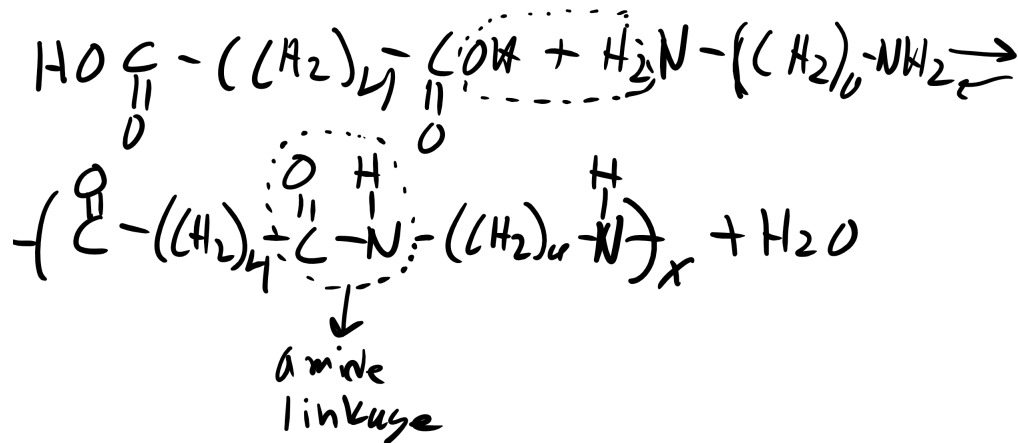 HOC-(CH2)4-COH + H2N-(CH2)6-NH2 ⇌
O O
O O H H
-(C-(CH2)4-C-N-(CH2)6-N-)x + H2O
amide
linkage